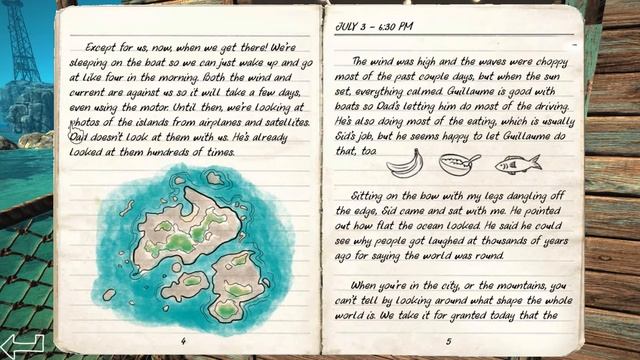 Except for us, now, when we get there! We're
sleeping on the boat so we can just wake up and go
at like four in the morning. Both the wind and
current are against us so it will take a few days,
even using the motor. Until then, we're looking at
photos of the islands from airplanes and satellites.
Dad doesn't look at them with us. He's already
looked at them hundreds of times.
4
JULY 3 - 6:30 PM
The wind was high and the waves were choppy
most of the past couple days, but when the sun
set, everything calmed. Guillaume is good with
boats so Dad's letting him do most of the driving.
He's also doing most of the eating, which is usually
Sid's job, but he seems happy to let Guillaume do
that, too.
Sitting on the bow with my legs dangling off
the edge, Sid came and sat with me. He pointed
out how flat the ocean looked. He said he could
see why people got laughed at thousands of years
ago for saying the world was round.
When you're in the city, or the mountains, you
can't tell by looking around what shape the whole
world is. We take it for granted today that the
5